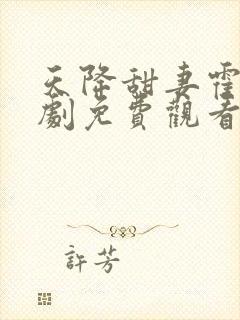 天降甜妻霍
劇免費觀看
許芳